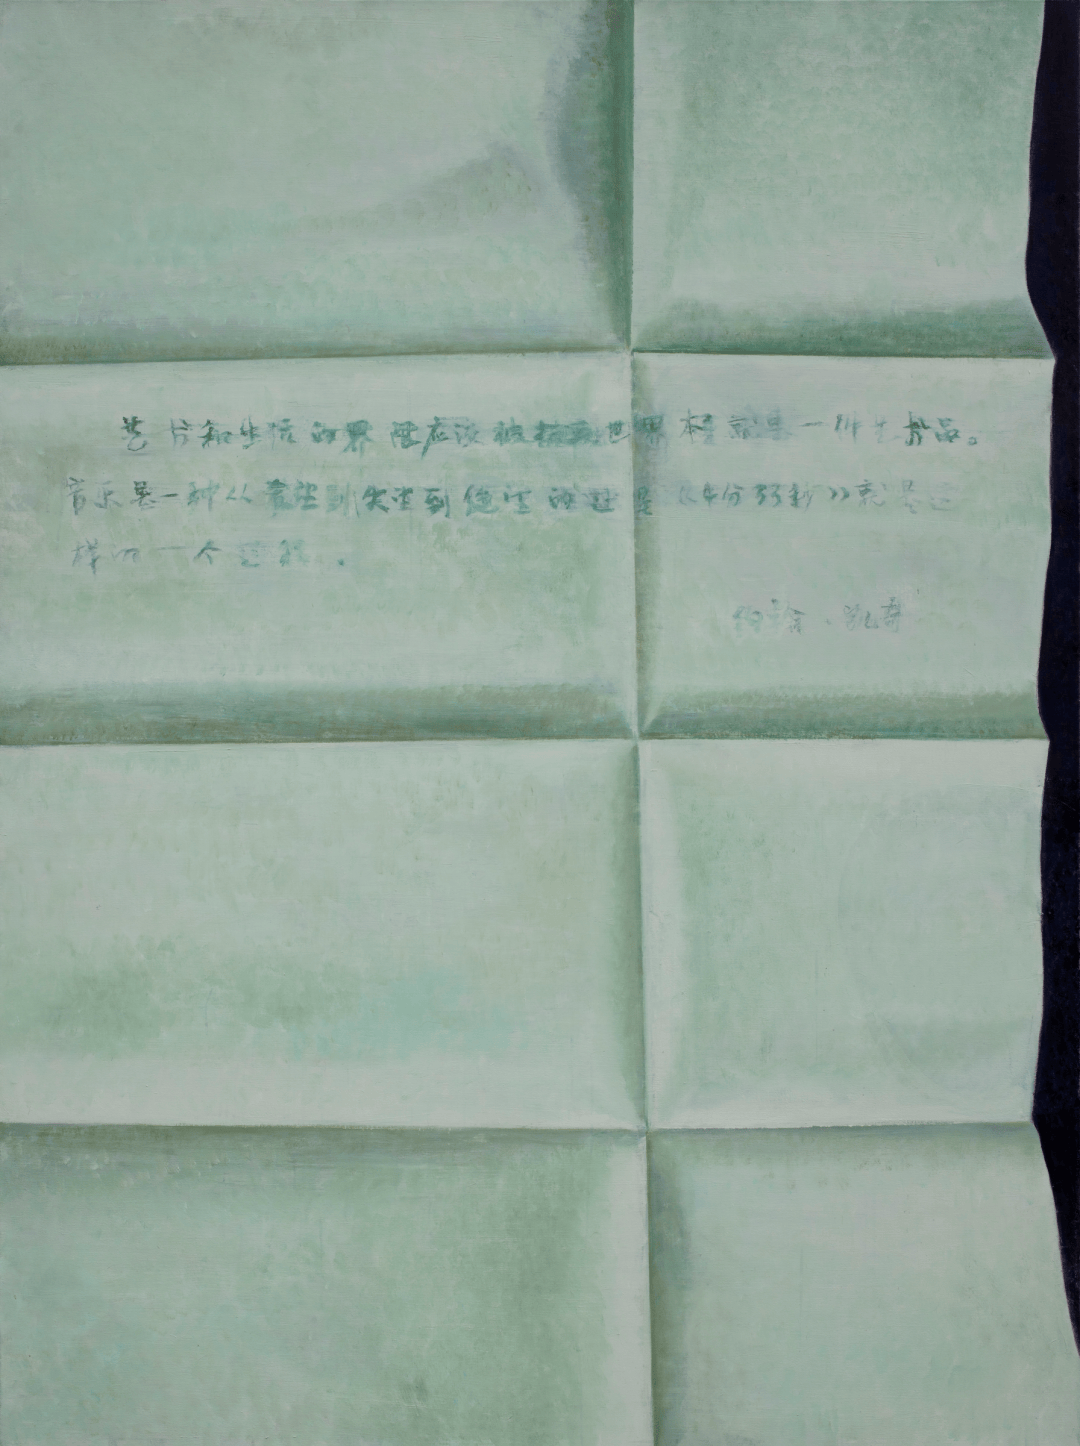 艺术和生活的界限应该被抹去世界本身就是一件艺术品。
音乐是一种从希望到失望到绝望的过程《4分33秒》就是这
样的一个过程。
约翰·凯奇